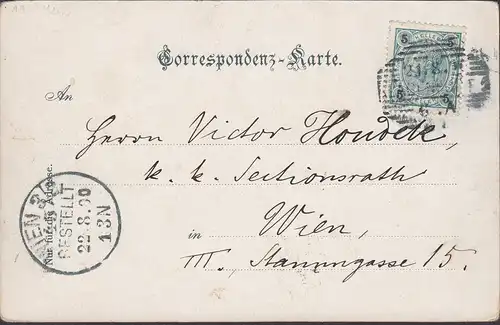 Correspondenz-Karte.
An
Herrn Victor Houdek,
k. k. Sectionsrath
in Wien,
III., Stammgasse 15.
Nur für die Adresse.
WIEN 3
BESTELLT
22.8.00
1 3N
5 5
5 5